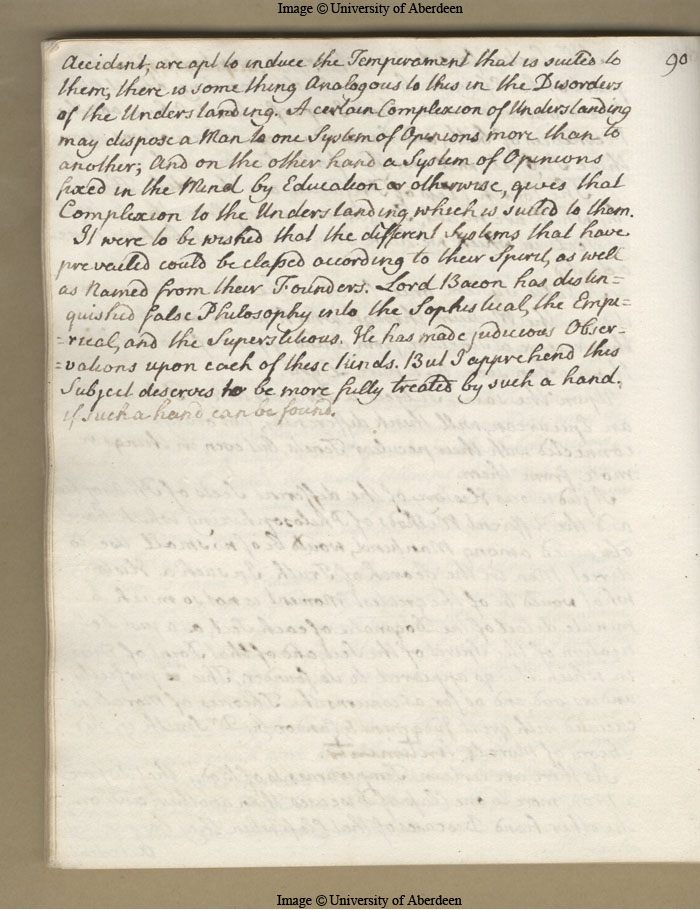 Image © University of Aberdeen
90
Accident, are apt to induce the Temperament that is suited to
them, there is some thing Analogous to this in the Disorders
of the Understanding. A certain Complexion of Understanding
may dispose a Man to one System of Opinions more than to
another; And on the other hand a System of Opinions
fixed in the Mind by Education or otherwise, gives that
Complexion to the Understanding which is suited to them.
It were to be wished that the different Systems that have
prevailed could be classed according to their Spirit, as well
as Named from their Founders. Lord Bacon has distin=
quished false Philosophy into the Sophistical, the Empi=
=rical, and the Superstitious. He has made judicious Obser=
=vations upon each of these kinds. But I apprehend this
Subject deserves to be more fully treated by such a hand.
if such a hand can be found.
Image © University of Aberdeen